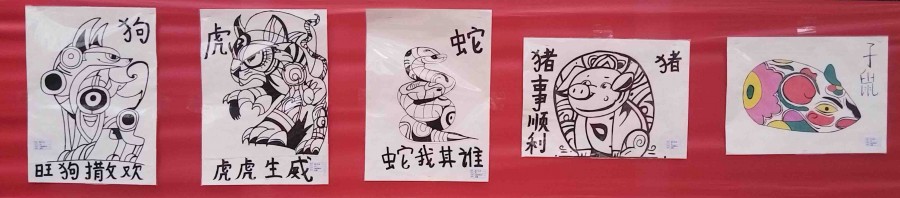 狗
旺狗撒欢
虎
虎虎生威
蛇
蛇我其谁
猪事顺利
猪
子鼠